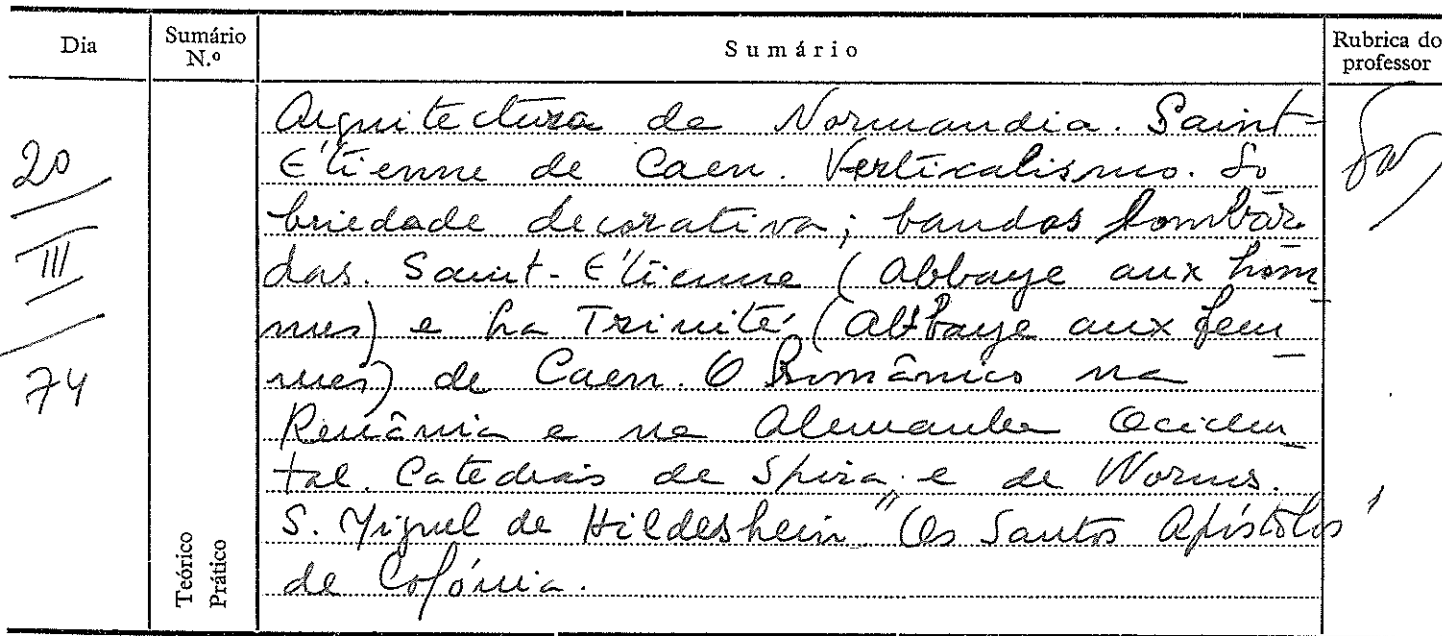 Dia Sumário N.º Sumário Rubrica do professor
20/III/74
Arquitectura de Normandia. Saint-
Étienne de Caen. Verticalismo. So
briedade decorativa; bandas lombar
das. Saint-Étienne (Abbaye aux hom
mes) e La Trinité (Abbaye aux fem
mes) de Caen. O Românico na
Renânia e na Alemanha Ociden
tal. Catedrais de Spira e de Worms.
S. Miguel de Hildesheim "Os Santos Apóstolos"
de Colónia.
Teórico
Prático